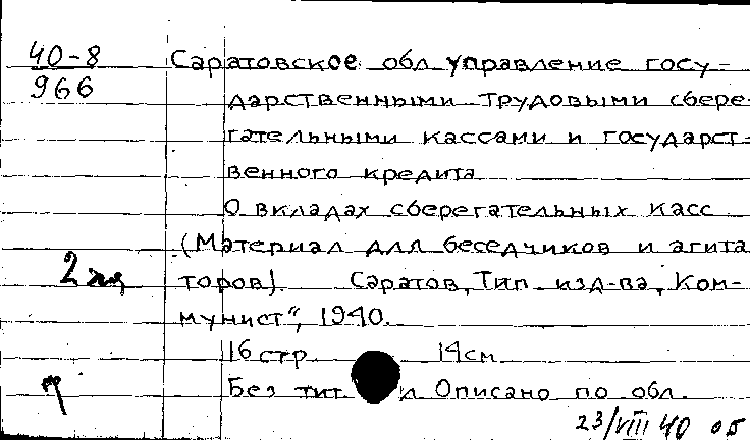 40-8
966
Саратовское обл. управление госу-
дарственными трудовыми сбере-
гательными кассами и государст-
венного кредита
О вкладах сберегательных касс
(Материал для беседчиков и агита
торов). Саратов, Тип. изд-ва „Ком-
мунист“, 1940.
2 экз
16 стр. 14 см
Без тит. л Описано по обл.
23/VIII 40 05